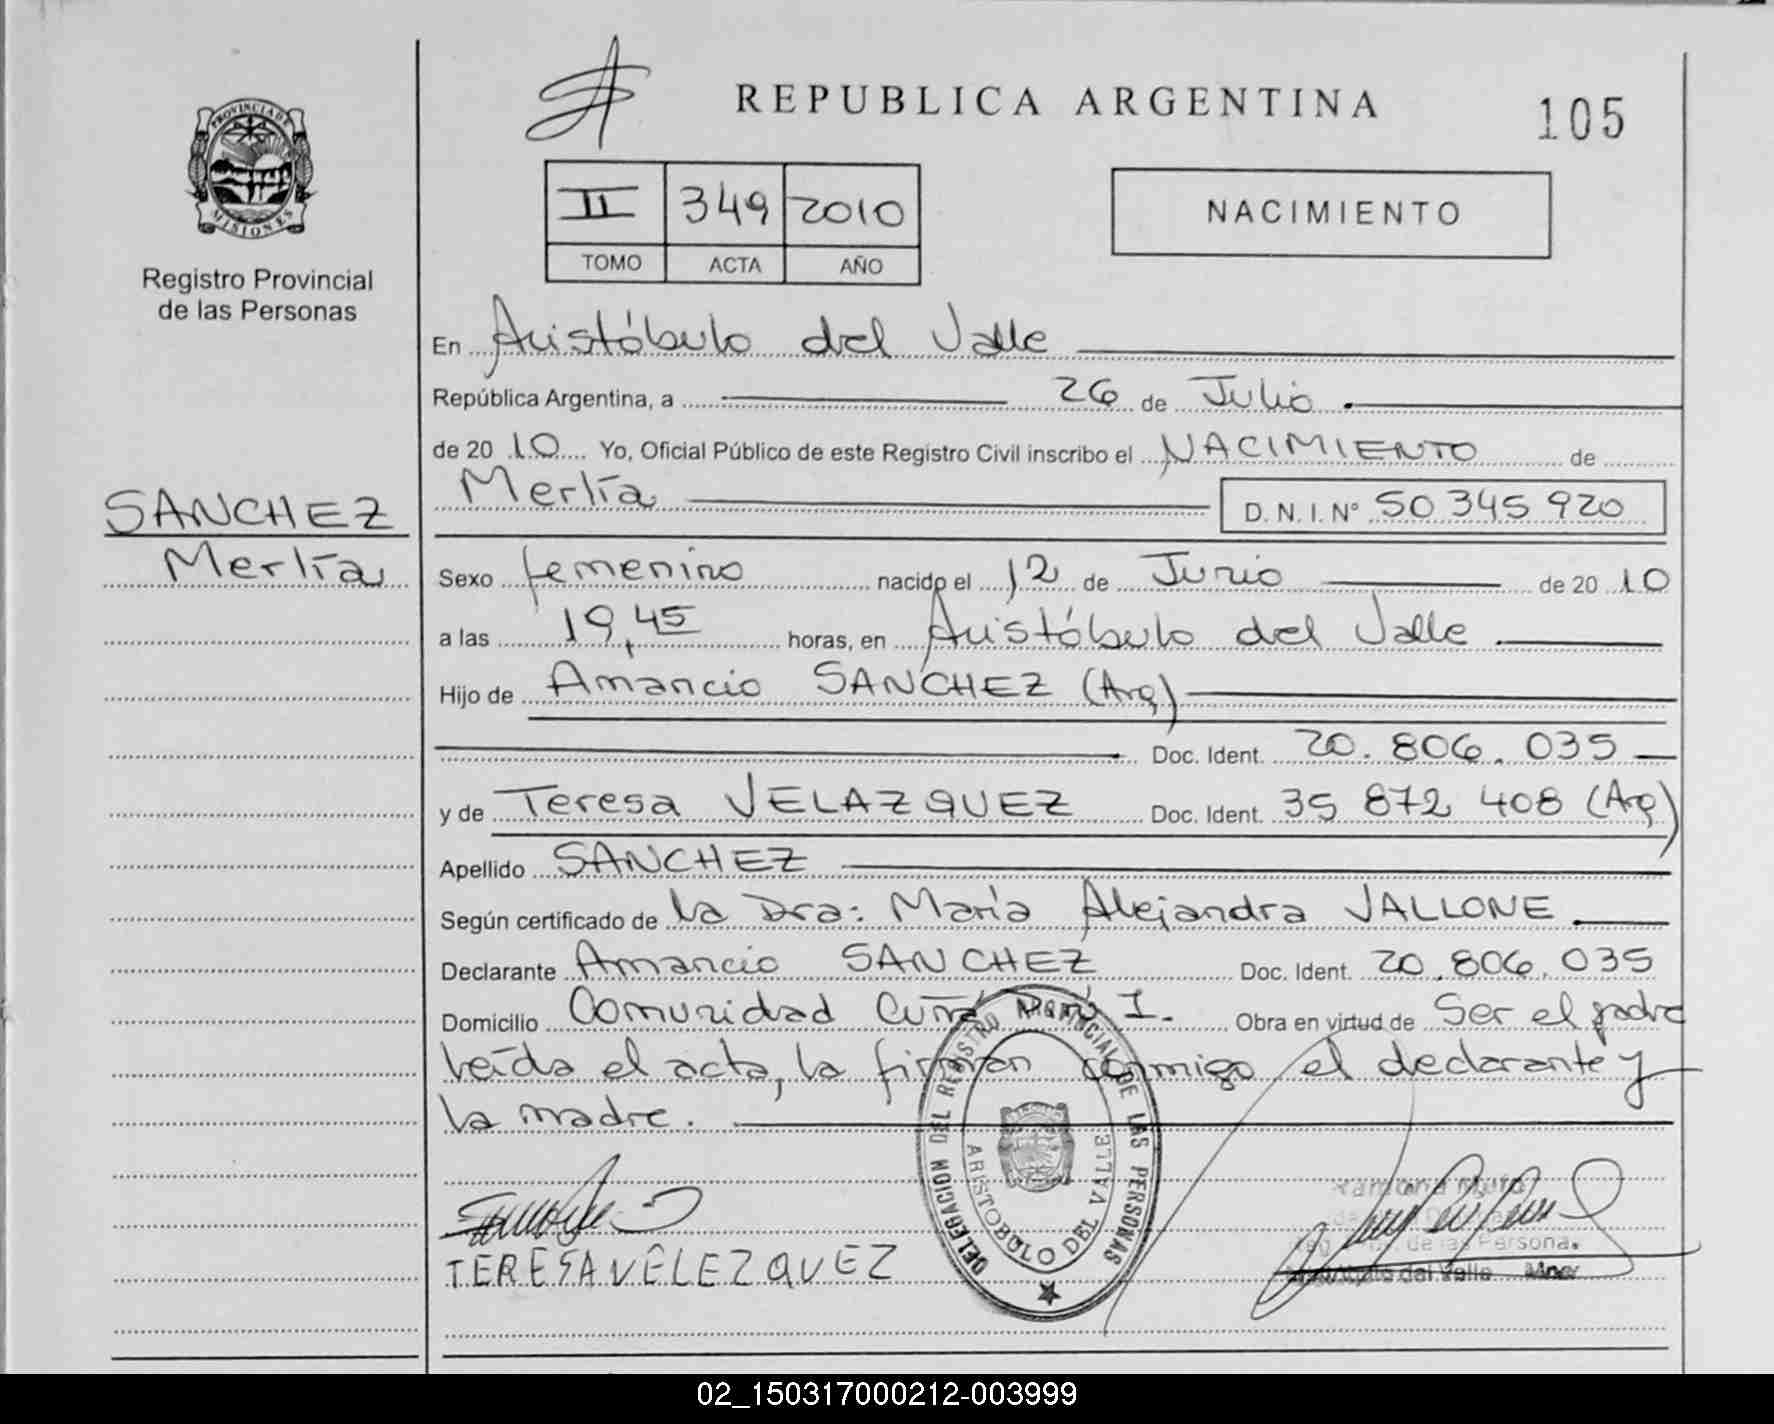 REPUBLICA ARGENTINA
105
PROVINCIA DE MISIONES
Registro Provincial
de las Personas
II 349 2010
TOMO ACTA AÑO
NACIMIENTO
En Aristóbulo del Valle
República Argentina, a 26 de Julio
de 20 10 Yo, Oficial Público de este Registro Civil inscribo el NACIMIENTO de
Merlía D.N.I. N° 50 345 920
SANCHEZ
Merlía
Sexo femenino nacido el 12 de Junio de 20 10
a las 19,45 horas, en Aristóbulo del Valle
Hijo de Amancio SANCHEZ (Arg)
Doc. Ident. 20.806.035
y de Teresa VELAZQUEZ Doc. Ident. 35 872 408 (Arg)
Apellido SANCHEZ
Según certificado de la Dra: María Alejandra VALLONE
Declarante Amancio SANCHEZ Doc. Ident. 20.806.035
Domicilio Comunidad Cuñá Pirú I. Obra en virtud de Ser el padre
leída el acta, la firman conmigo el declarante y
la madre.
DELEGACION DEL REGISTRO PROVINCIAL DE LAS PERSONAS
ARISTOBULO DEL VALLE
Ramona
de las Persona
del Valle
TERESA VELEZQUEZ
02_150317000212-003999